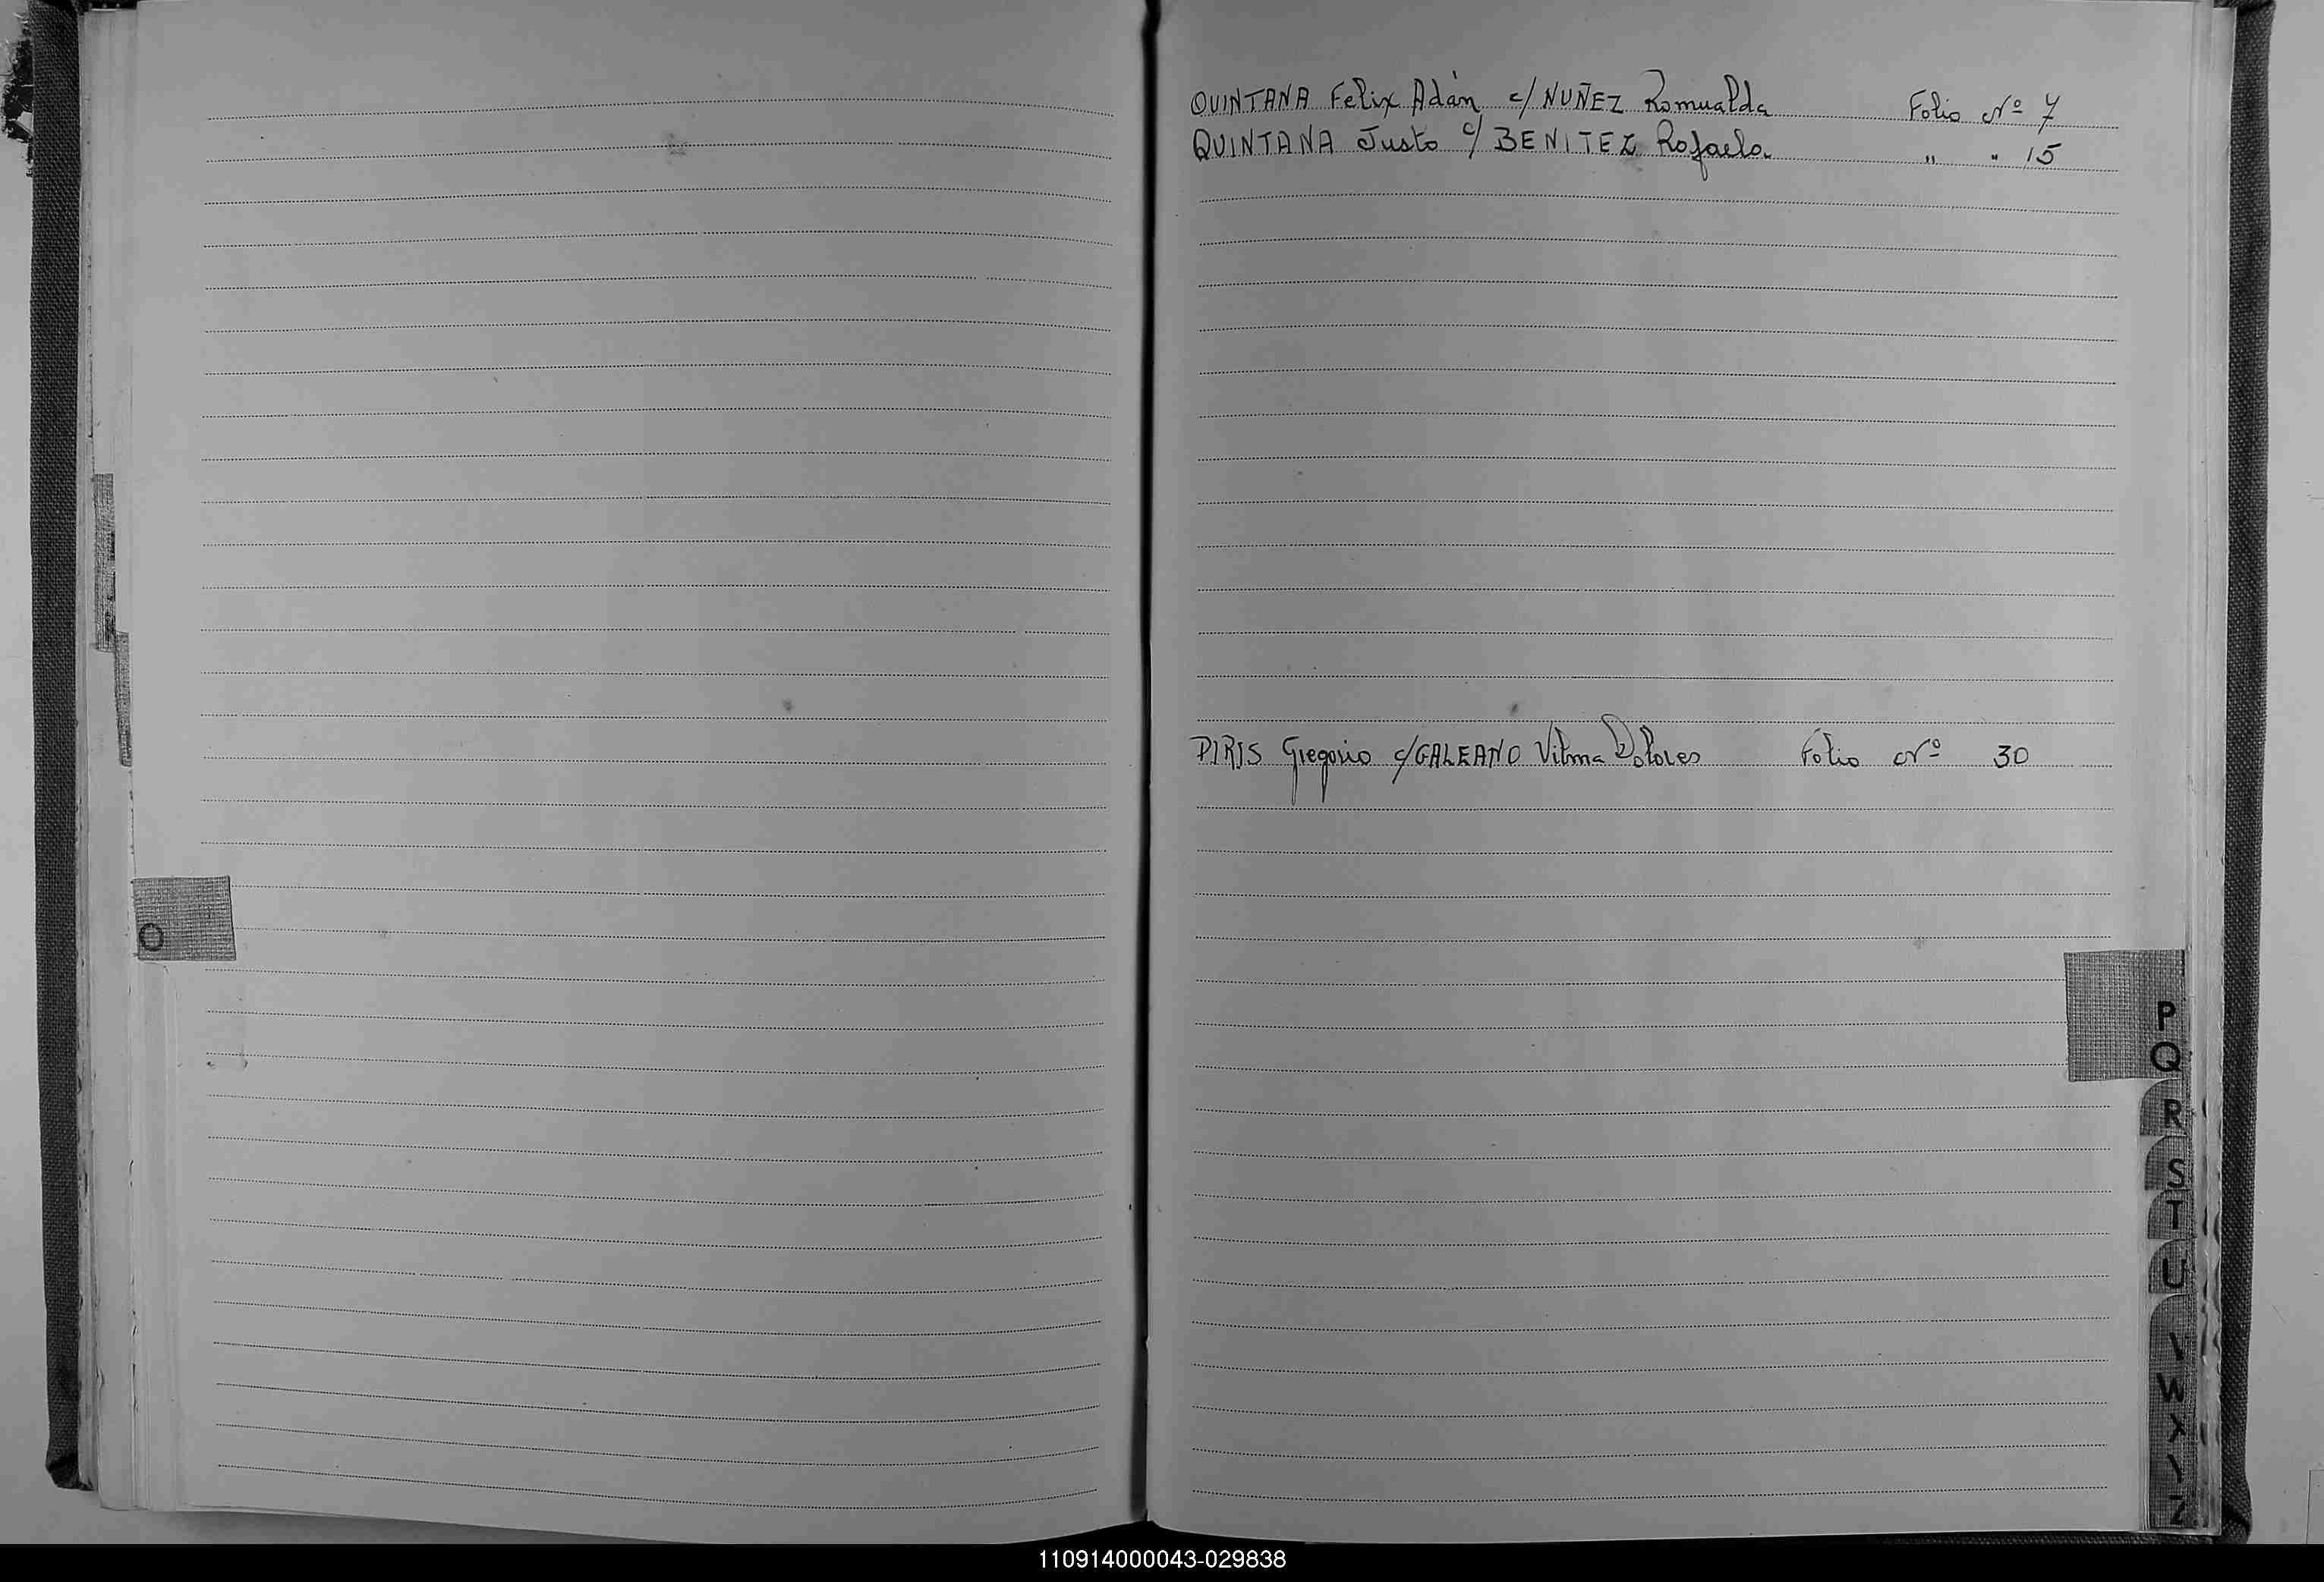 QUINTANA Felix Adán c/ NUÑEZ Romualda Folio Nº 7
QUINTANA Justo c/ BENITEZ Rafaela " " 15
PIRIS Gregorio c/ GALEANO Vilma Dolores Folio Nº 30
O
P
Q
R
S
T
U
W
X
Z
110914000043-029838